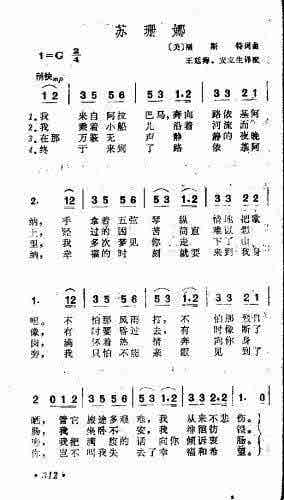 苏珊娜
1=G 2/4
〔美〕福斯特词曲
王廷海、安立生译配
mp
12 | 35 56 | 53 1·2 | 33 21
1.我 来自阿拉 巴马,奔向 路依基阿
2.我 乘着小船 儿沿着 河流而
3.在那 万籁无 声 静静的夜晚
4.终 于来到 了路依基阿
2· 12 | 35 56 | 53 1·2 | 33 22
纳,手 拿着五弦 琴纵 情地把歌
上,经 过的困 苦简直
里,我 多次梦见 你走 下了山
纳,幸 福的时 刻就要 来到我身
1· 12 | 35 56 | 53 1·2 | 33 21
唱。不 怕那风雨 打,不 怕那烈日
像,有 时要昏 过去,有 时像断了
岗,满 怀着热 情奔 向你
旁,我 只怕不能 亲眼 见到了
2 012 | 35 56 | 53 1·2 | 33 22 | 1
晒,管它 旅途多艰 难,我 从来不悲伤。
肠,我 坐卧不 安,我
我把 满腹的 话向你 倾诉衷肠。
你,岂不 叫我失 去了幸 福和希望。
·312·